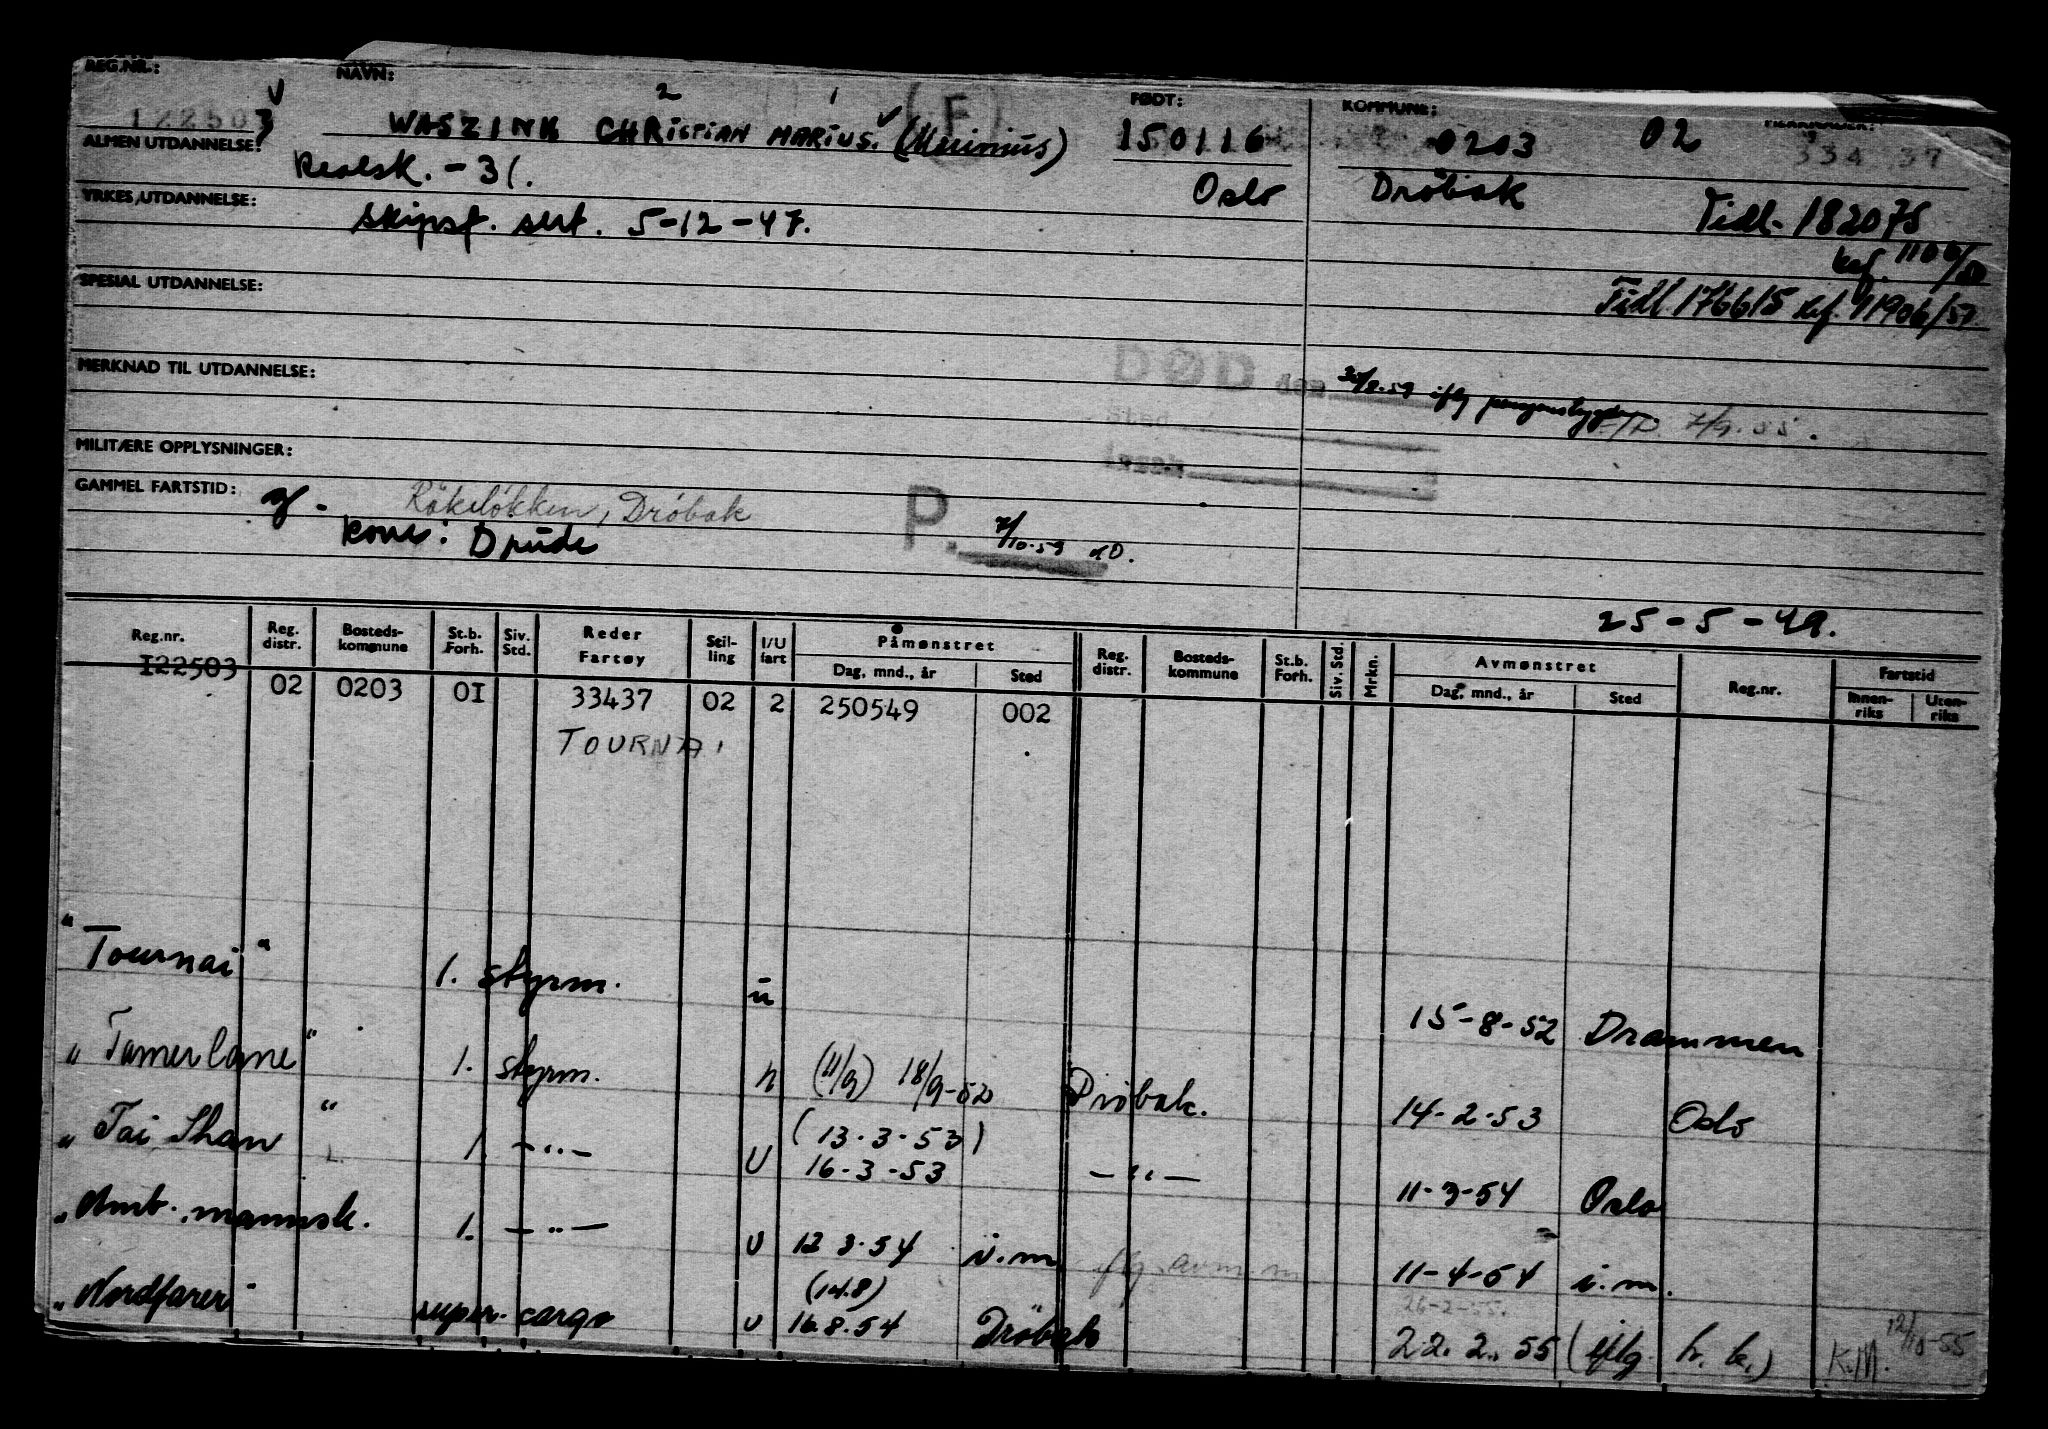 REG.NR.: NAVN: FØDT: KOMMUNE:
122503 WASZINK CHRISTIAN MARIUS. 150116 0203 02 334 37
2 1 (F)
ALMEN UTDANNELSE: Realsk. - 31. Oslo Dröbak
YRKES UTDANNELSE: Skipsf. sert. 5-12-47. Tidl. 182075
kef. 1106/50
SPESIAL UTDANNELSE: Tidl 176615 kef. 11906/51
MERKNAD TIL UTDANNELSE: DØD den
7/9.55.
MILITÆRE OPPLYSNINGER:
GAMMEL FARTSTID: Dröbak P. 7/10.59
kone: Drude
25-5-49.
Reg.nr. Reg. distr. Bosteds-kommune St.b. Forh. Siv. Std. Reder Fartøy Stil-ling I/U fart Påmønstret Dag, mnd., år Sted Reg. distr. Bosteds-kommune St.b. Forh. Siv. Std. Mrkn. Avmønstret Dag, mnd., år Sted Reg.nr. Fartstid Innen-riks Uten-riks
I22503 02 0203 0I 33437 02 2 250549 002
TOURNAI
"Tournai" 1. styrm. u 15-8-52 Drammen
"Tamerlane" 1. styrm. (11/9) 18/9-52 Dröbak. 14-2-53 Oslo
(13.3.53)
"Tai Shan" 1. -"- U 16-3-53 -"- 11-3-54 Oslo
"Amb. mannsk. 1. -"- U 12 3.54 i.m 11-4-54 i.m.
(14.8) 26-2-55.
"Nordfarer" super. cargo U 16.8.54 Dröbak 22.2.55 (iflg h. k.) K.M. 12/10-55